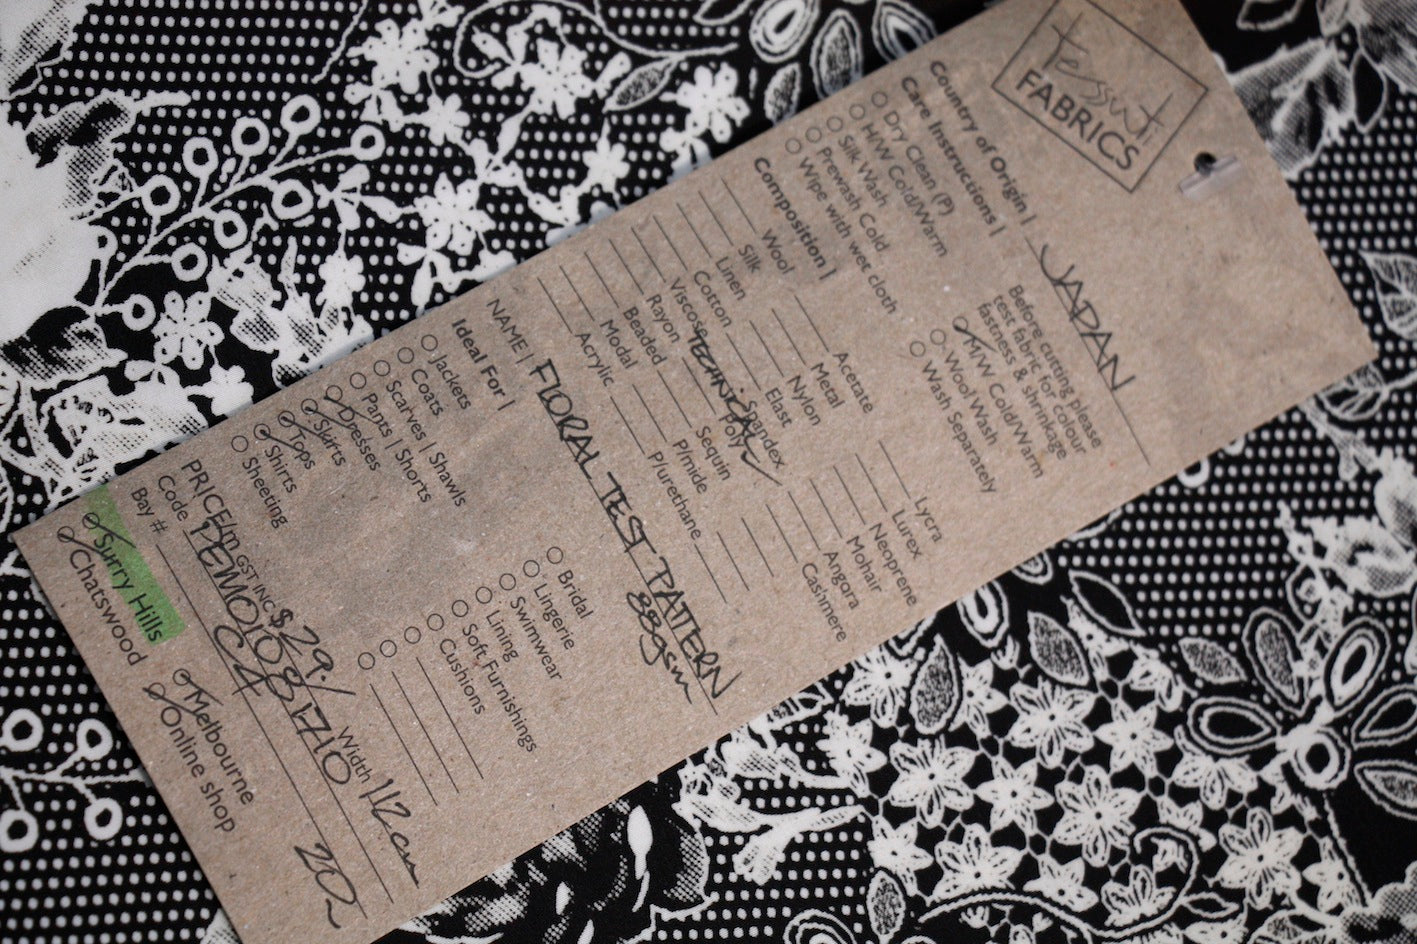 Tessuti
FABRICS
Country of Origin | JAPAN
Care Instructions |
Dry Clean (P)
H/W Cold/Warm
Silk Wash
Prewash Cold
Wipe with wet cloth
Before cutting please
test fabric for colour
fastness & shrinkage
M/W Cold/Warm
Wool Wash
Wash Separately
Composition |
Wool
Silk
Linen
Cotton
Viscose
Rayon
Beaded
Modal
Acrylic
Acetate
Metal
Nylon
Elast
Spandex
TECHNICAL Poly
Sequin
P/mide
P/urethane
Lycra
Lurex
Neoprene
Mohair
Angora
Cashmere
NAME | FLORAL TEST PATTERN
88gsm
Ideal For |
Jackets
Coats
Scarves | Shawls
Pants | Shorts
Dresses
Skirts
Tops
Shirts
Sheeting
Bridal
Lingerie
Swimwear
Lining
Soft Furnishings
Cushions
PRICE/m GST INC $29./ Width 112cm
Code TEMO1081710
Bay # C4 20m
Surry Hills
Chatswood
Melbourne
Online shop